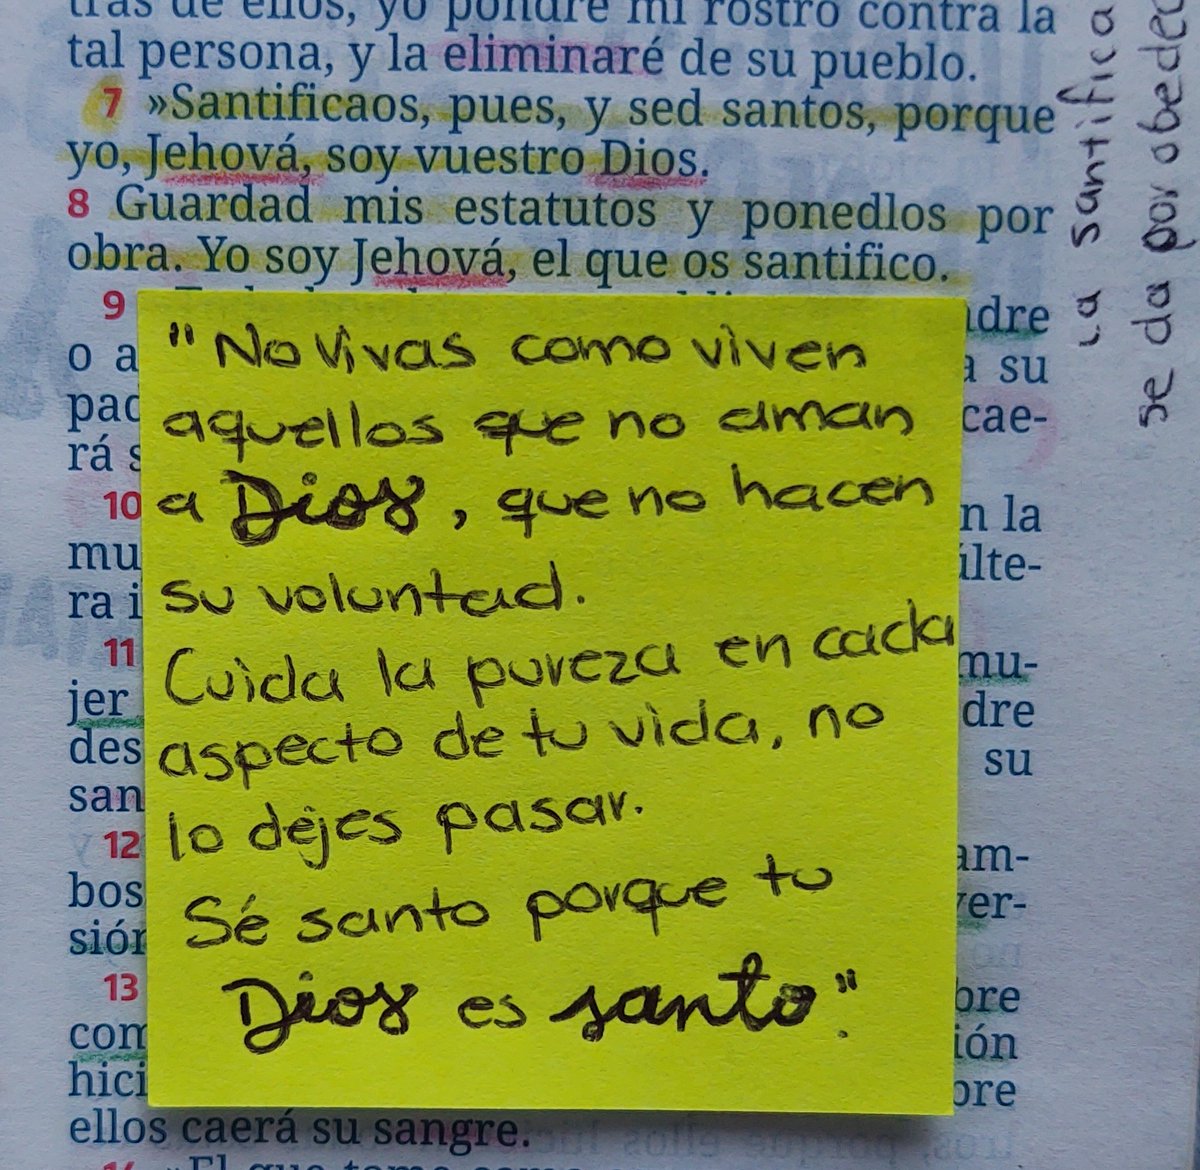 tras de ellos, yo pondré mi rostro contra la
tal persona, y la eliminaré de su pueblo.
7 »Santificaos, pues, y sed santos, porque
yo, Jehová, soy vuestro Dios.
8 Guardad mis estatutos y ponedlos por
obra. Yo soy Jehová, el que os santifico.
9
o a
su
rá s
cae-
10
n la
mu
ra i
11
mu-
jer
dre
des
su
san
12
bos
sión
13
com
hici
ellos caerá su sangre.
"No vivas como viven
aquellos que no aman
a Dios, que no hacen
su voluntad.
Cuida la pureza en cada
aspecto de tu vida, no
lo dejes pasar.
Sé santo porque tu
Dios es santo".
la santifica
se da por obedec